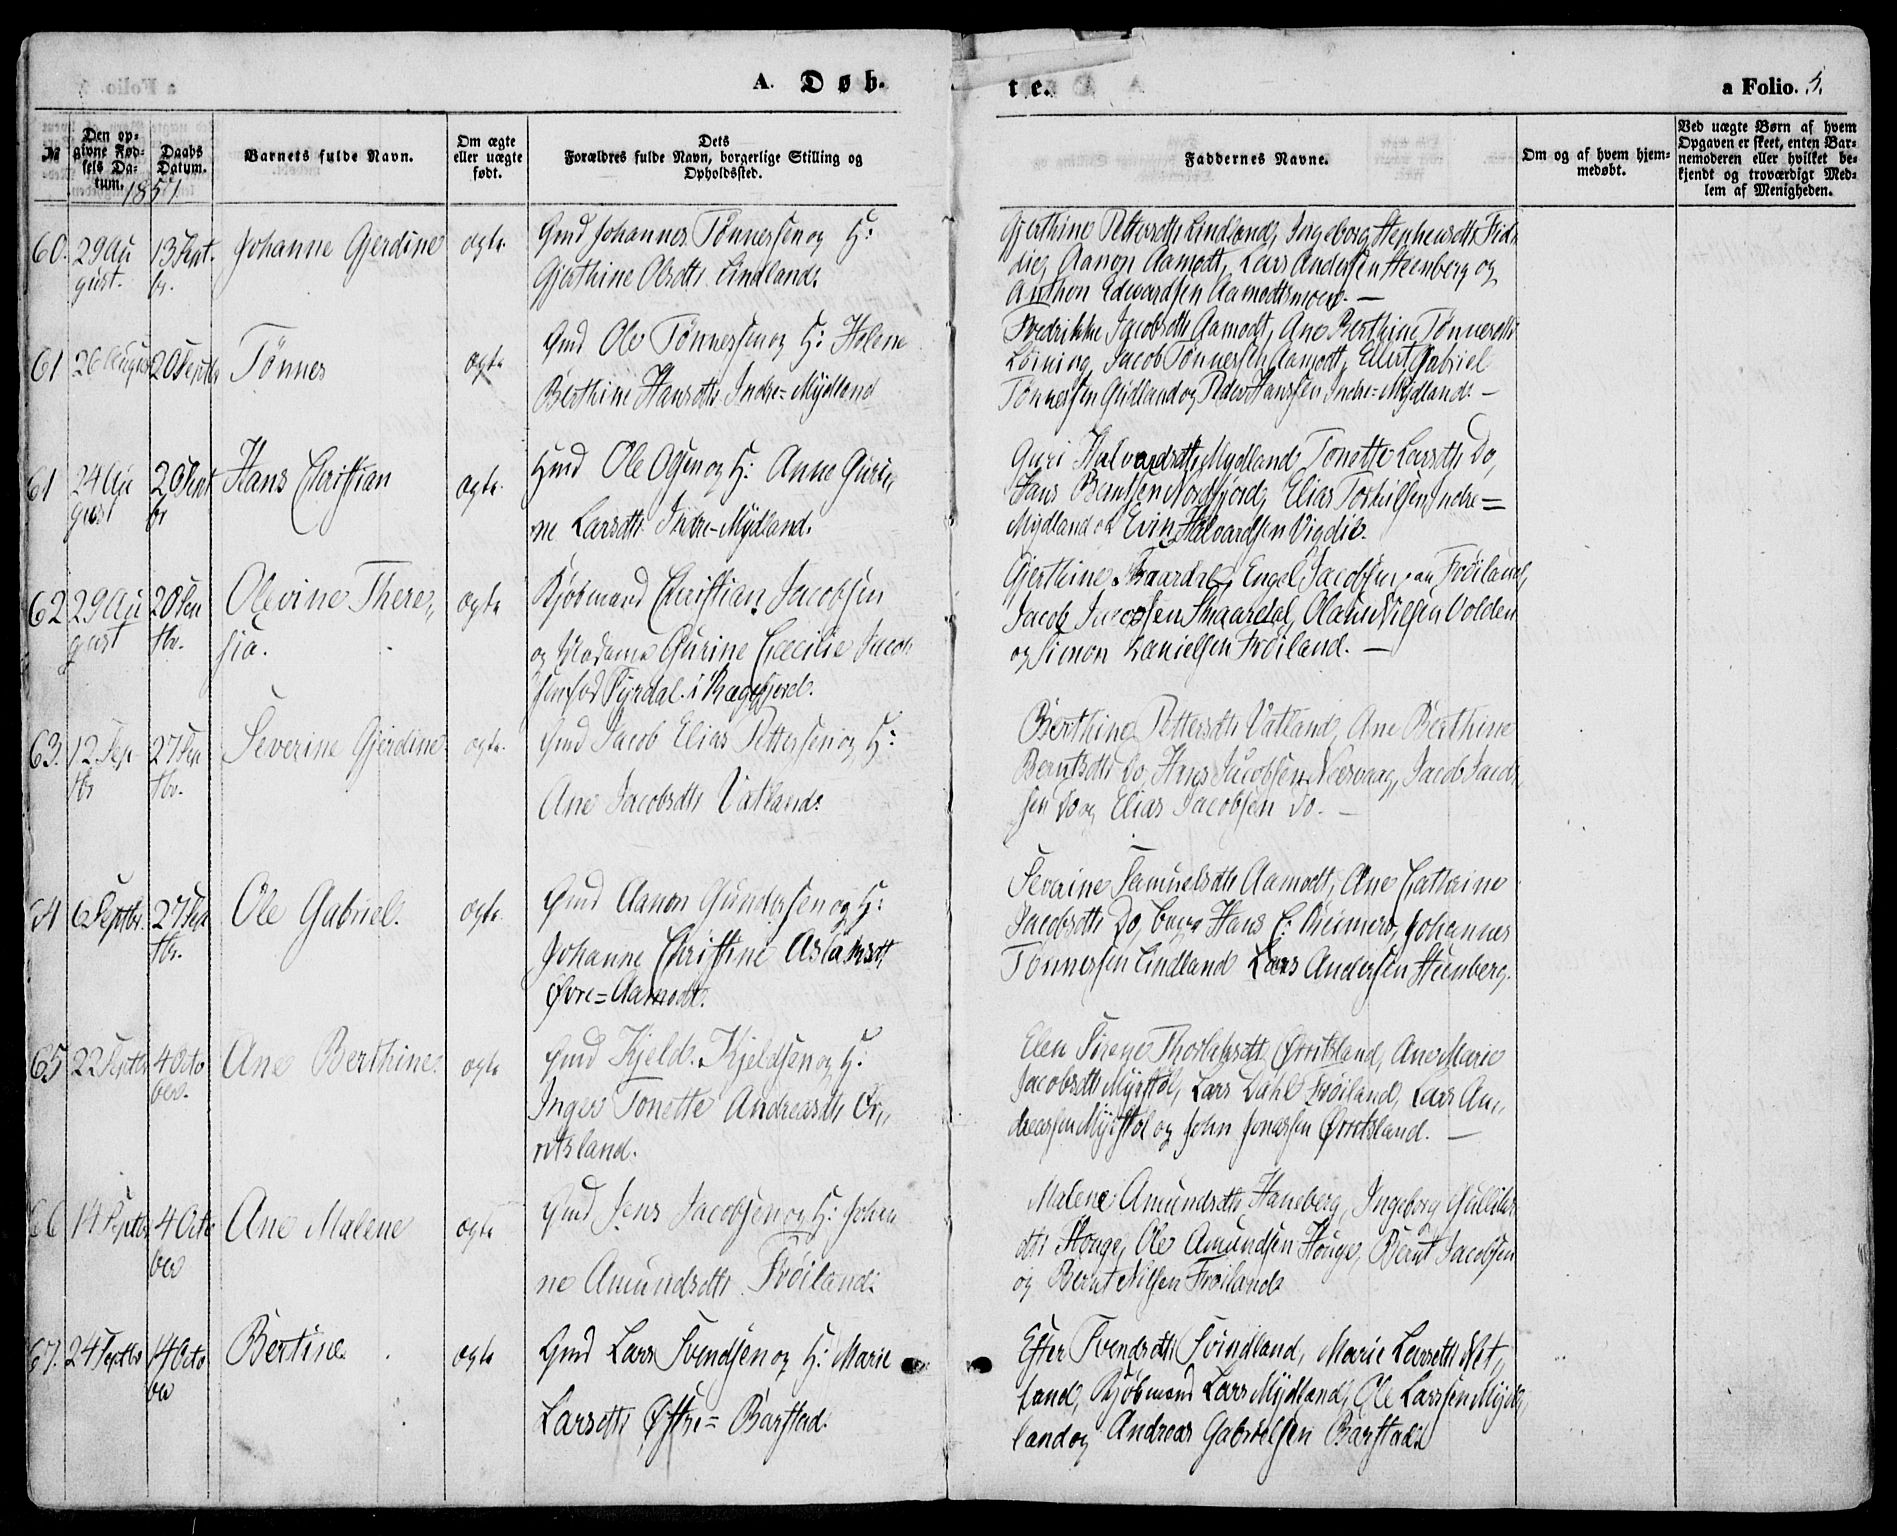 A. Døb.
te.
a Folio. 5.
№
Den op-
givne Fød-
sels Da-
tum.
Daabs
Datum.
Barnets fulde Navn.
Om ægte
eller uægte
født.
Dets
Forældres fulde Navn, borgerlige Stilling og
Opholdssted.
Faddernes Navne.
Om og af hvem hjem-
medøbt.
Ved uægte Børn af hvem
Opgaven er skeet, enten Bar-
nemoderen eller hvilket be-
kjendt og troværdigt Med-
lem af Menigheden.
1851.
60. 29 Au 13 Sept Johanne Gjerdine ægte. Gmd Johannes Tønnessen og H:
gust. br. Gjerthine Olsdtr Lindland.
Gjerthine Pettersdtr Lindland, Ingeborg
Aanon Aamodt, Lars Andersen Steenberg og
Anthon Edvardsen Aamodtsmoen. —
61 26 August 20 Septbr Tønnes ægte Gmd Ole Tønnessen og H: Helene
Berthine Hansdtr Indre=Mydland
Fredrikke Jacobsdtr Aamodt, Ane Berthine Tønnesdtr
Jacob Tønnessen Aamodt, Gabriel
Tønnessen og Peder Hanssen Indre=Mydland. —
61 24 Au 20 Sept Hans Christian ægte. Gmd Ole Olsen og H: Anne Guri-
gust br ne Larsdtr Indre-Mydland.
Guri Halvardsdtr Mydland, Tonette Larsdtr Do,
Hans Berntsen Nordfjord, Elias Torkilsen Indre=
Mydland og Halvardsen Vigdil.
62 29 Au 20 Sep Olevine There„ ægte Kjøbmand Christian Jacobsen
gust tbr. sia. og Madame Gurine Cæcilie Jacob
sen født Tyrdal i Rægefjord.
Gjerthine Skaardal, Engel Jacobsen Frøiland,
Jacob Jacobsen Skaardal, Olaus Nilsen Volden
og Simon Danielsen Frøiland. —
63. 12 Sep 27 Sep Severine Gjerdine ægte. Gmd Jacob Elias Pettersen og H:
tbr tbr. Ane Jacobsdtr Vatland.
Berthine Pettersdtr Vatland, Ane Berthine
Berntsdtr Do, Hans Jacobsen Jacob Jacob
sen Do og Elias Jacobsen Do. —
64 6 Septbr. 27 Sep Ole Gabriel. ægte Gmd Aanon Gundersen og H:
tbr. Johanne Christine Aslaksdt
Øvre=Aamodt.
Sevrine Samuelsdtr Aamodt, Ane Cathrine
Jacobsdtr Do, Hans C: Johannes
Tønnessen Lindland Lars Andersen Steenberg.
65 22 Septbr 4 Octo Ane Berthine. ægte Gmd Kjeld Kjeldsen og H:
ber. Inger Tonette Andreasdtr Ør„
retsland.
Elen Sirene Thorlaksdtr Ørretsland, Ane Marie
Jacobsdtr Myrstøl, Lars Dahl Frøiland, Lars An„
dreassen Myrstøl og John Jonassen Ørretsland. —
66 14 Septbr 4 Octo Ane Malene ægte Gmd Jens Jacobsen og H: Johan
ber ne Amundsdtr Frøiland.
Malene Amundsdtr Haneberg, Ingeborg
dtr Houge, Ole Amundsen Houge, Bernt Jacobsen
og Bernt Nilsen Frøiland.
67. 24 Septbr 14 Octo Bertine. ægte Gmd Lars Svendsen og H: Marie
ber Larsdtr Østre= Barstad.
Ester Svendsdtr Svindland, Marie Larsdtr Net„
land, Kjøbmand Lars Mydland, Ole Larssen Myd„
land og Andreas Gabrielsen Barstad.